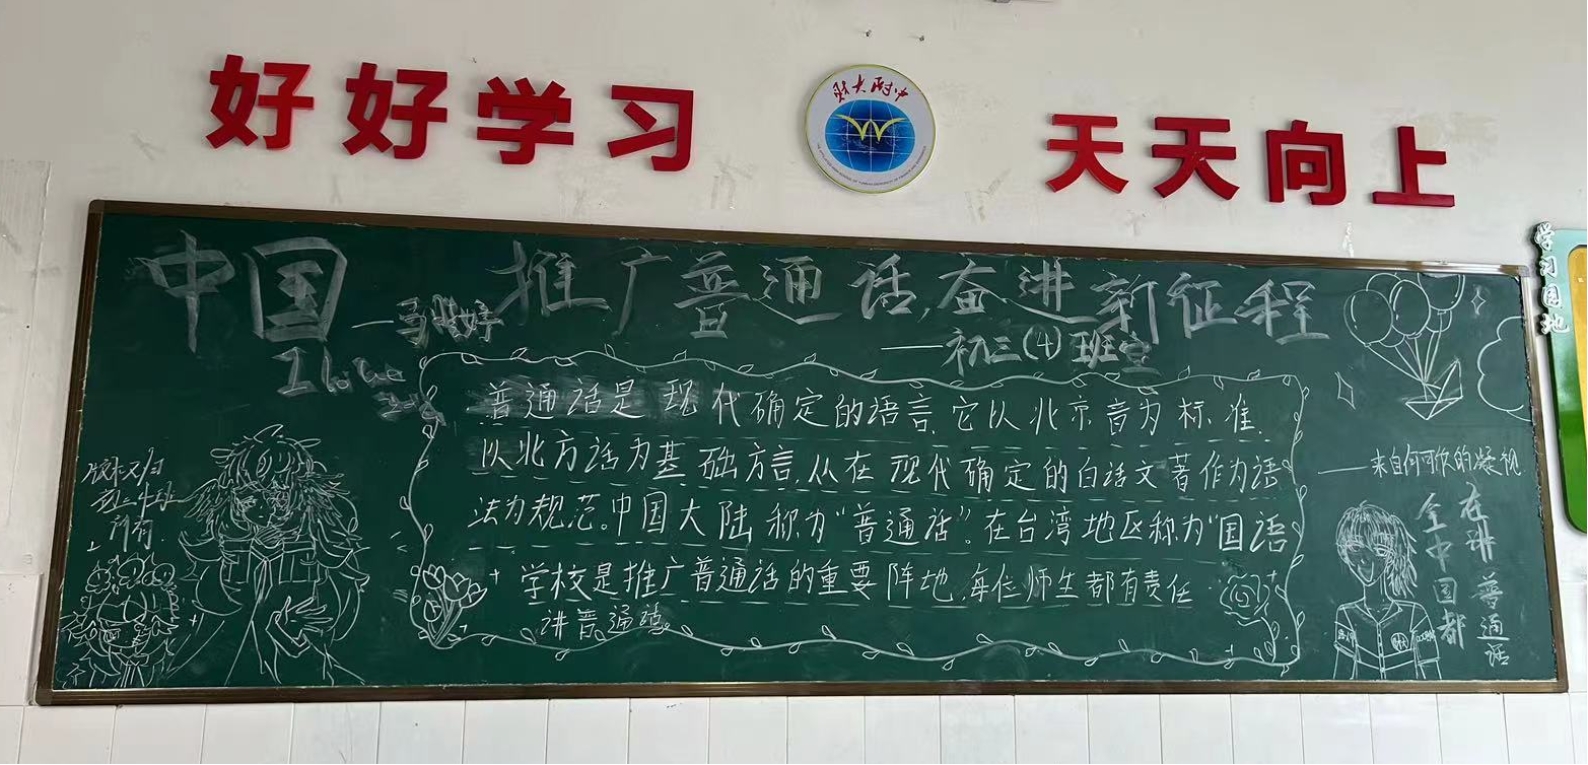 好好学习
天天向上
财大附中
学习园地
中国
推广普通话,奋进新征程
——初三(4)班宣
普通话是现代确定的语言,它以北京音为标准,
以北方话为基础方言,从在现代确定的白话文著作为语
法为规范。中国大陆称为“普通话”。在台湾地区称为“国语
学校是推广普通话的重要阵地,每位师生都有责任
讲普通话。
初三4班
所有
——来自何可欣的凝视
全中国都
在讲普通话